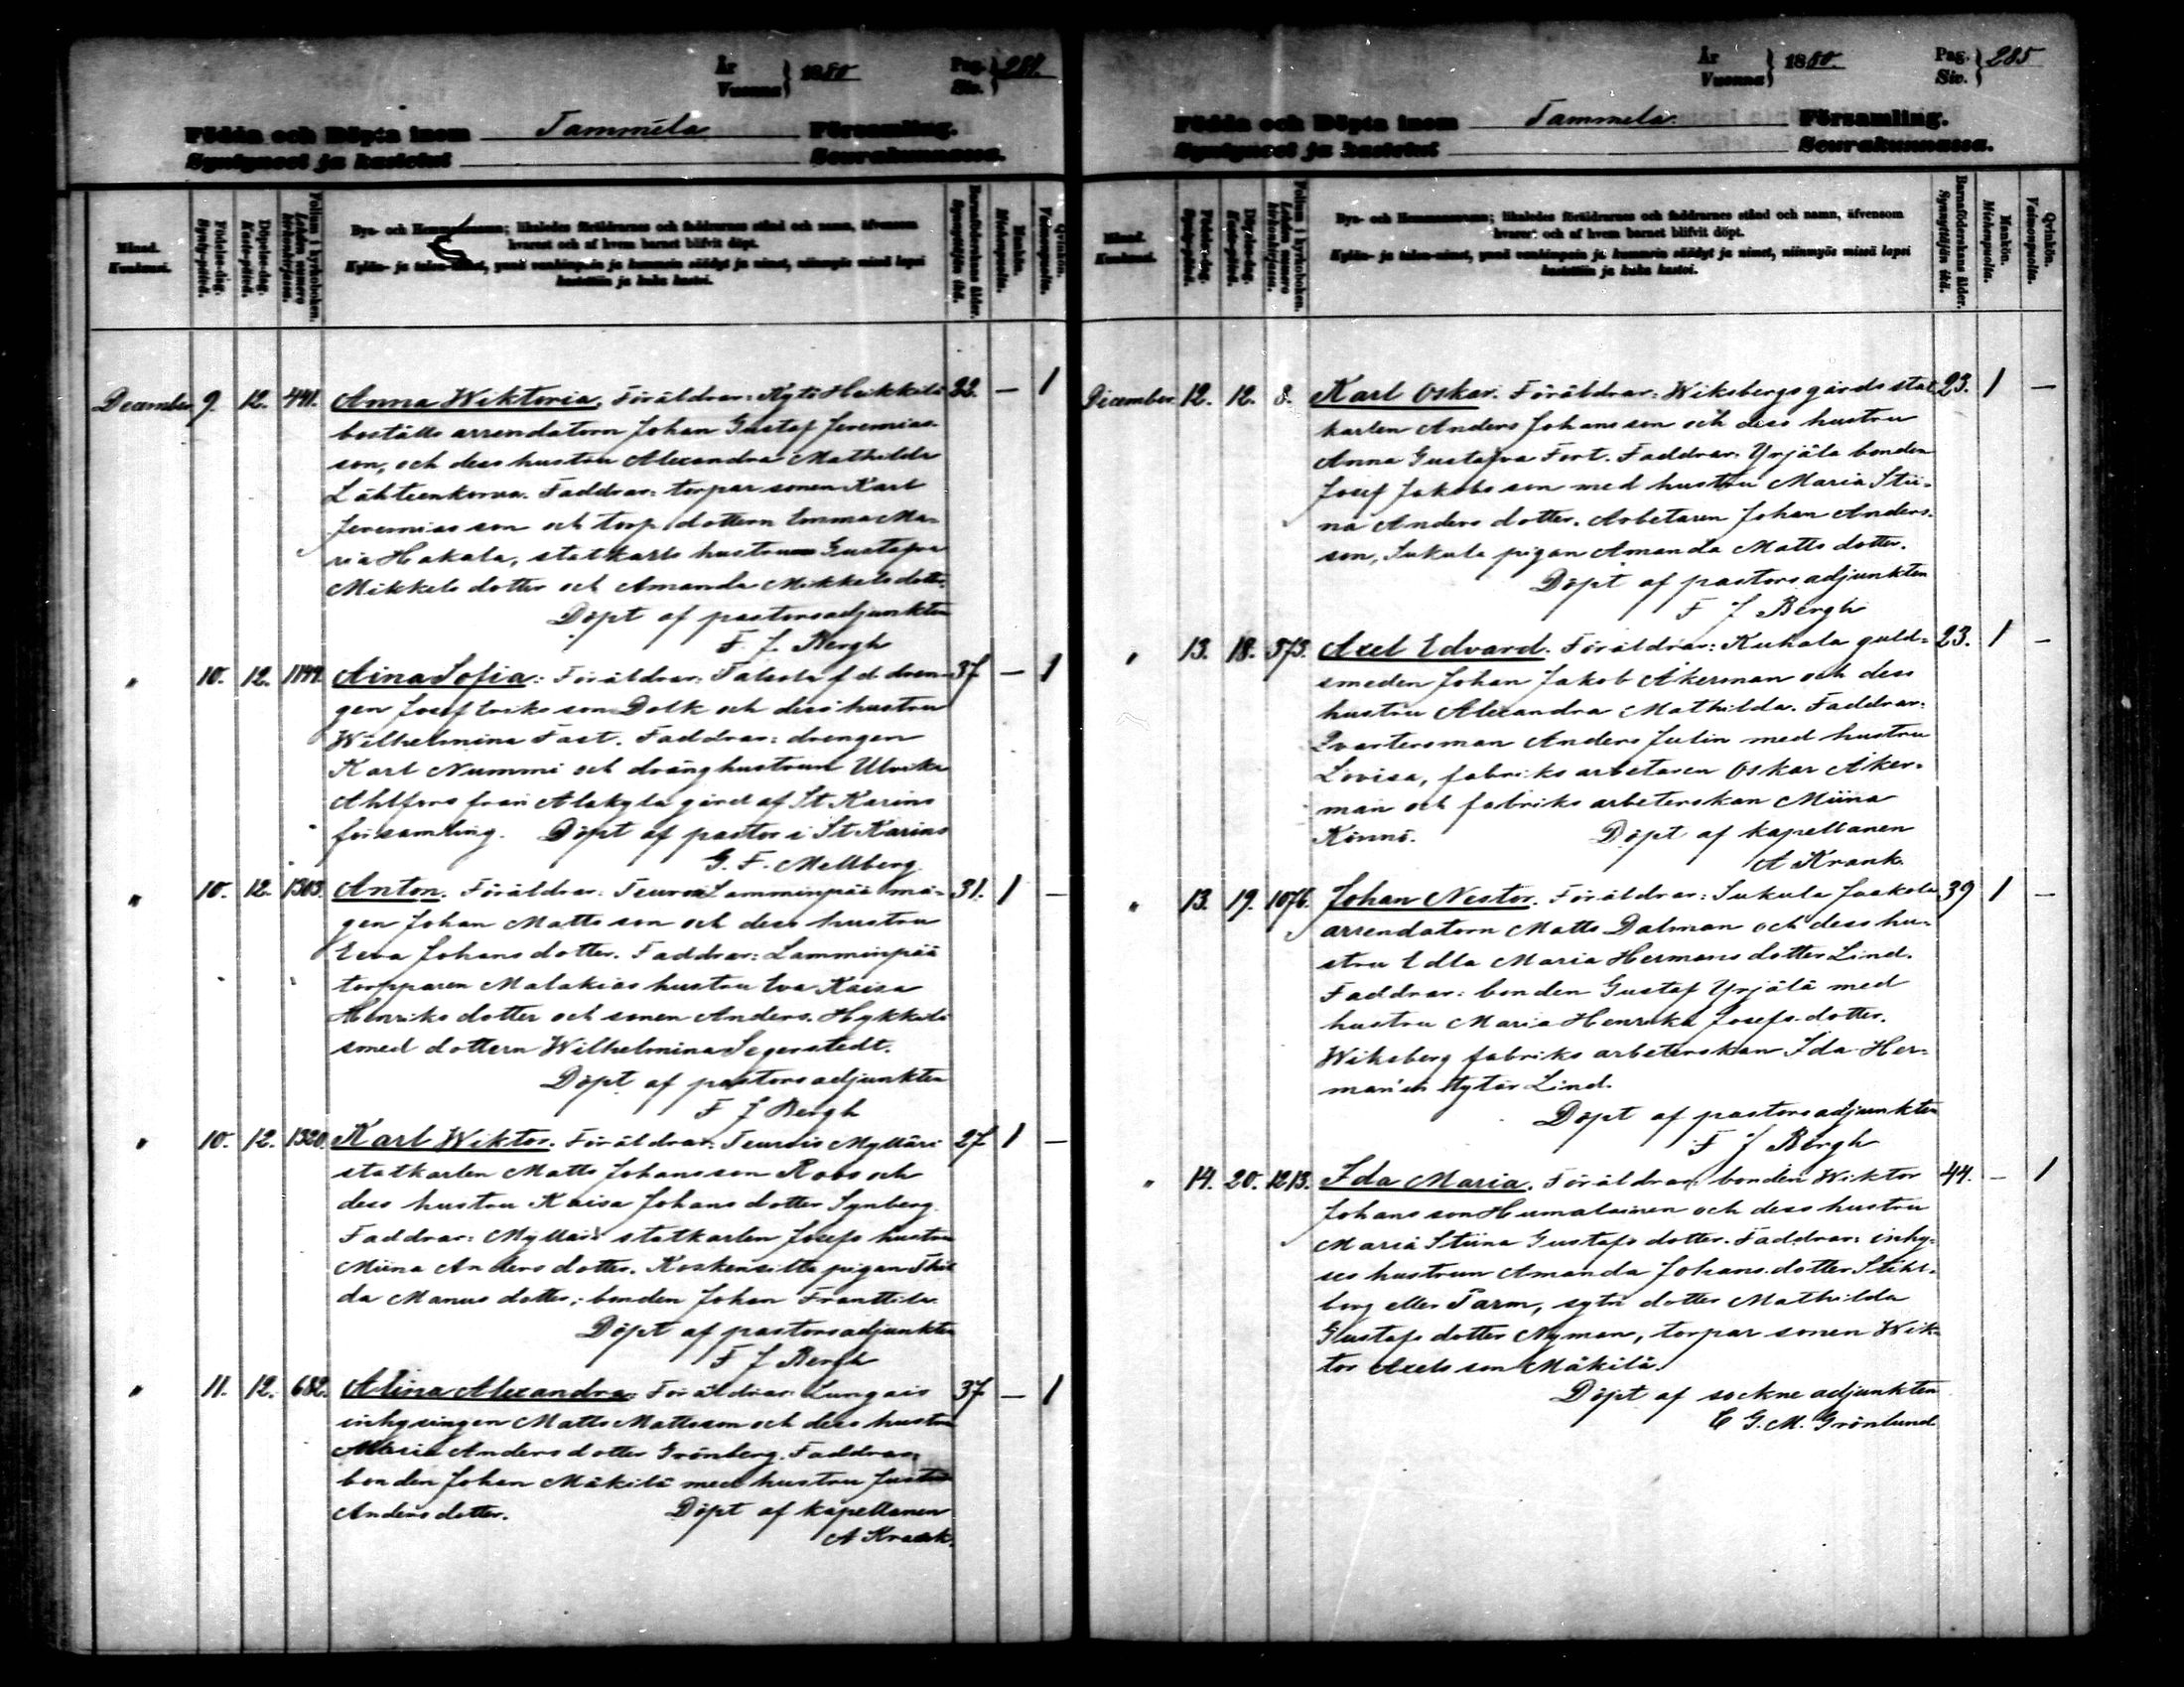 År
Vuonna } 1880
Pag.
Siv. } 284.
Födda och Döpta inom Tammela Församling.
Syntyneet ja kastetut Seurakunnassa.
Månad.
Kuukausi.
Födelse-dag.
Synty-päivä.
Döpelse-dag.
Kaste-päivä.
Folium i kyrkoboken.
Lehden numero kirkonkirjassa.
Bya- och Hemmansnamn; likaledes föräldrarnes och faddrarnes stånd och namn, äfvensom
hvarest och af hvem barnet blifvit döpt.
Kylän- ja talon-nimet, ynnä vanhinpain ja kummein säädyt ja nimet, niinmyös missä lapsi
kastettiin ja kuka kastoi.
Barnaföderskans ålder.
Synnyttäjän ikä.
Mankön.
Miehenpuolia.
Qvinkön.
Vaimonpuolia.
December 9. 12. 441. Anna Wiktoria. Föräldrar: Kytö Heikkilä 22. — 1
boställs arrendatorn Johan Gustaf Jeremias-
son, och dess hustru Alexandra Mathilda
Lähteenkorva. Faddrar: torpar sonen Karl
Jeremias son och torp. dottern Emma Ma-
ria Hakala, statkarls hustrun Gustafva
Mikkels dotter och Amanda Mikkels dotter.
Döpt af pastorsadjunkten
F. J. Bergh
" 10. 12. 1149. Aina Sofia: Föräldrar: f d dren- 37. — 1
gen Josef Eriks son Dolk och dess hustru
Wilhelmina Fast. Faddrar: drengen
Karl Nummi och dränghustrun Ulrika
Ahlfors från Alakylä gård af St Karins
församling. Döpt af pastor i St Karins
G. F. Mellberg
" 10. 12. 1303. Anton. Föräldrar: Teuro Lamminpää må- 31. 1 —
gen Johan Matts son och dess hustru
Eeva Johans dotter. Faddrar: Lamminpää
torpparen Malakias hustru Eva Kaisa
Henriks dotter och sonen Anders. Hykkilä
smed dottern Wilhelmina Segerstedt.
Döpt af pastorsadjunkten
F J Bergh
" 10. 12. 1320. Karl Wiktor. Föräldrar: Teurois Mylläri 27 1 —
statkarlen Matts Johansson Roos och
dess hustru Kaisa Johans dotter Synberg.
Faddrar: Mylläri statkarlen Josefs hustru
Miina Anders dotter. Koskensilta pigan Thil
da Manus dotter; bonden Johan Franttila
Döpt af pastorsadjunkten
F J Bergh
" 11. 12. 682. Alina Alexandra: Föräldrar: Lungais 37 — 1
inhysingen Matts Mattsson och dess hustru
Maria Anders dotter Grönberg. Faddrar:
bonden Johan Mäkilä med hustru Justina
Anders dotter. Döpt af kapellanen
A Krank.
År
Vuonna } 1880.
Pag.
Siv. } 285
Födda och Döpta inom Tammela. Församling.
Syntyneet ja kastetut Seurakunnassa.
Månad.
Kuukausi.
Födelse-dag.
Synty-päivä.
Döpelse-dag.
Kaste-päivä.
Folium i kyrkoboken.
Lehden numero kirkonkirjassa.
Bya- och Hemmansnamn; likaledes föräldrarnes och faddrarnes stånd och namn, äfvensom
hvarest och af hvem barnet blifvit döpt.
Kylän- ja talon-nimet, ynnä vanhinpain ja kummein säädyt ja nimet, niinmyös missä lapsi
kastettiin ja kuka kastoi.
Barnaföderskans ålder.
Synnyttäjän ikä.
Mankön.
Miehenpuolia.
Qvinkön.
Vaimonpuolia.
December. 12. 12. 8. Karl Oskar. Föräldrar: Wiksbergs gårds stat 23. 1 —
karlen Anders Johansson och dess hustru
Anna Gustafva Fort. Faddrar: Yrjälä bonden
Josef Jakobs son med hustru Maria Stii-
na Anders dotter. Arbetaren Johan Anders
son, Sukula pigan Amanda Matts dotter.
Döpt af pastorsadjunkten
F J Bergh
" 13. 18. 373. Axel Edvard. Föräldrar: Kuhala guld- 23. 1 —
smeden Johan Jakob Åkerman och dess
hustru Alexandra Mathilda. Faddrar:
Qvartersman Anders Julin med hustru
Lovisa, fabriks arbetaren Oskar Åker-
man och fabriks arbeterskan Miina
Könnö. Döpt af kapellanen
A Krank.
" 13. 19. 1076. Johan Nestor. Föräldrar: Sukula Jaakola 39 1 —
arrendatorn Matts Dalman och dess hu-
stru Edla Maria Hermans dotter Lind.
Faddrar: bonden Gustaf Yrjälä med
hustru Maria Henrika Josefs dotter.
Wiksberg fabriks arbeterskan Ida Her-
man'en tytär Lind.
Döpt af pastorsadjunkten
F J Bergh
" 14. 20. 1213. Ida Maria. Föräldrar: bonden Wiktor 44. — 1
Johans son Humalainen och dess hustru
Maria Stiina Gustafs dotter. Faddrar: inhy-
ses hustrun Amanda Johans dotter Stihl-
borg eller Tarm, sytn dotter Mathilda
Gustafs dotter Nyman, torpar sonen Wik-
tor Axels son Mäkilä.
Döpt af sockne adjunkten
C G. M. Grönlund